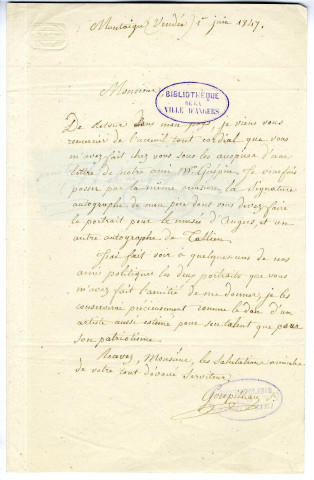 Montaigu (Vendée) 1er juin 1847.
Monsieur
BIBLIOTHÈQUE
DE LA
VILLE D'ANGERS
De retour dans mon pays, je viens vous
remercier de l'acceuil tout cordial que vous
m'avez fait chez vous sous les auspices d'une
lettre de notre ami Mr
passer par la même occasion, la signature
autographe de mon père dont vous devez faire
le portrait pour le musée d'Angers et un
autre autographe de Tallien.
J'ai fait voir à quelques uns de nos
amis politiques les deux portraits que vous
m'avez fait l'amitié de me donner, je les
conserverai précieusement comme le don d'un
artiste aussi estimé pour son talent que pour
son patriotisme.
Recevez, Monsieur, les salutations amicales
de votre tout dévoué serviteur.
Goupilleau